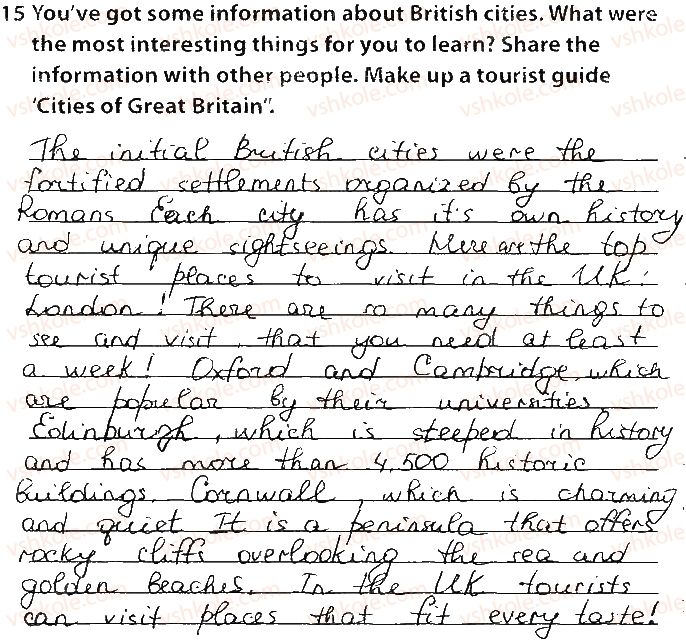 15 You've got some information about British cities. What were
the most interesting things for you to learn? Share the
information with other people. Make up a tourist guide
'Cities of Great Britain".
The initial British cities were the
fortified settlements organized by the
Romans Each city has it's own history
and unique sightseeings. Here are the top
tourist places to visit in the UK:
London! There are so many things to
see and visit, that you need at least
a week! Oxford and Cambridge, which
are popular by their universities.
Edinburgh, which is steeped in history
and has more than 4,500 historic
buildings. Cornwall, which is charming
and quiet It is a peninsula that offers
rocky cliffs overlooking the sea and
golden beaches. In the UK tourists
can visit places that fit every taste!